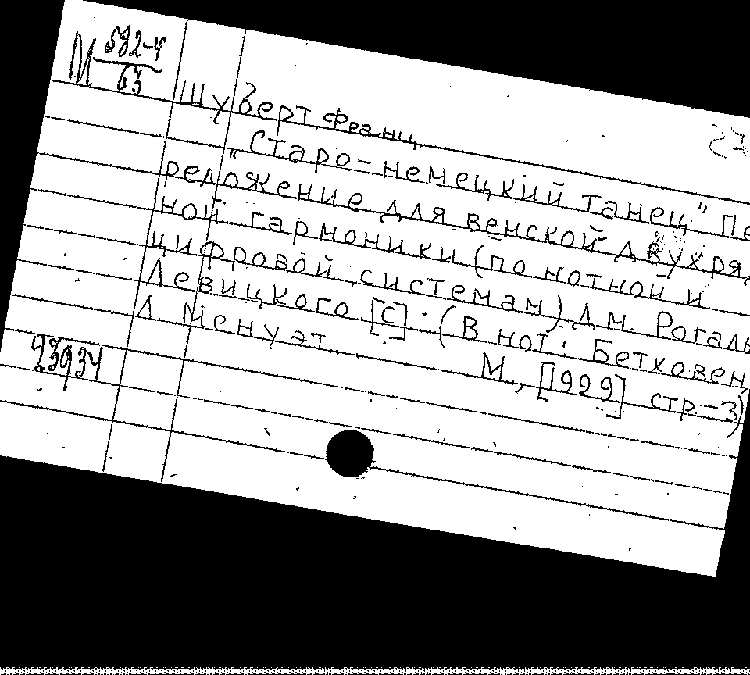 М 592-4
63
Шуберт Франц
27
"Старо-немецкий танец" Пе
реложение для венской двухряд
ной гармоники (по нотной и
цифровой системам) Дм. Рогаль
Левицкого [С]. (В нот: Бетховен
Л Менуэт М., [1929] стр-3)
93934